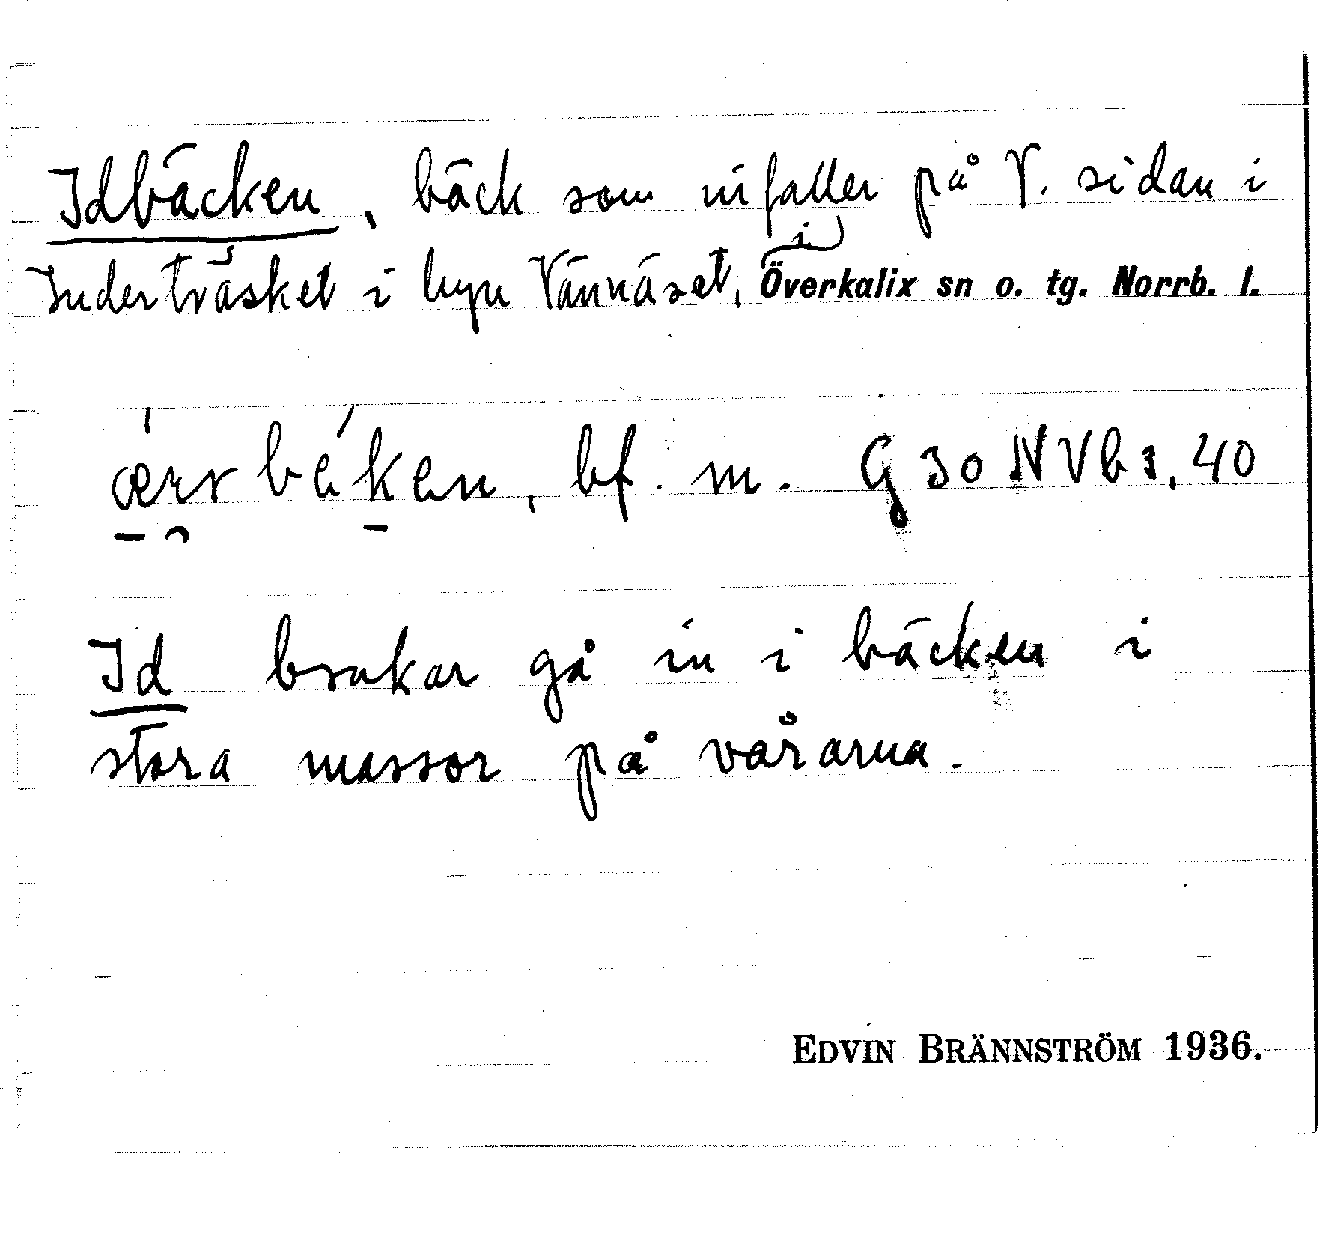 Idbäcken, bäck som infaller på V. sidan i
Inderträsket i byn Vännäset, i Överkalix sn o. tg. Norrb. l.
bäken, bf. m. G 30 NVb 1, 40
Id brukar gå in i bäcken i
stora massor på vårarna.
EDVIN BRÄNNSTRÖM 1936.